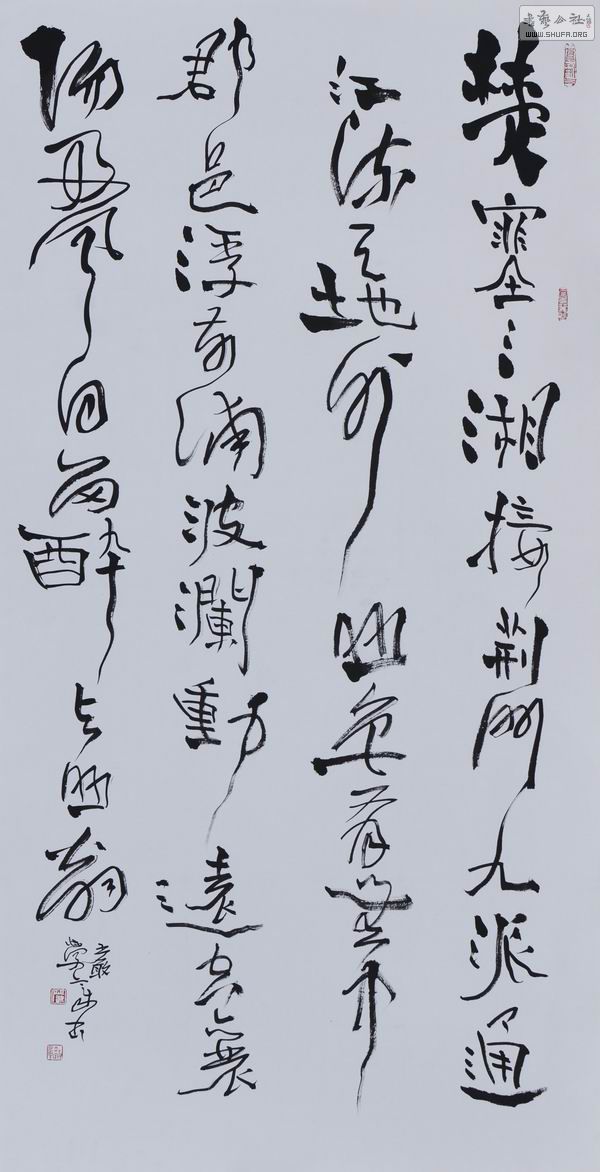 書藝公社
WWW.SHUFA.ORG
楚塞三湘接荆門九派通
江流天地外山色有無中
郡邑浮前浦波瀾動遠空襄
陽好風日留醉与山翁